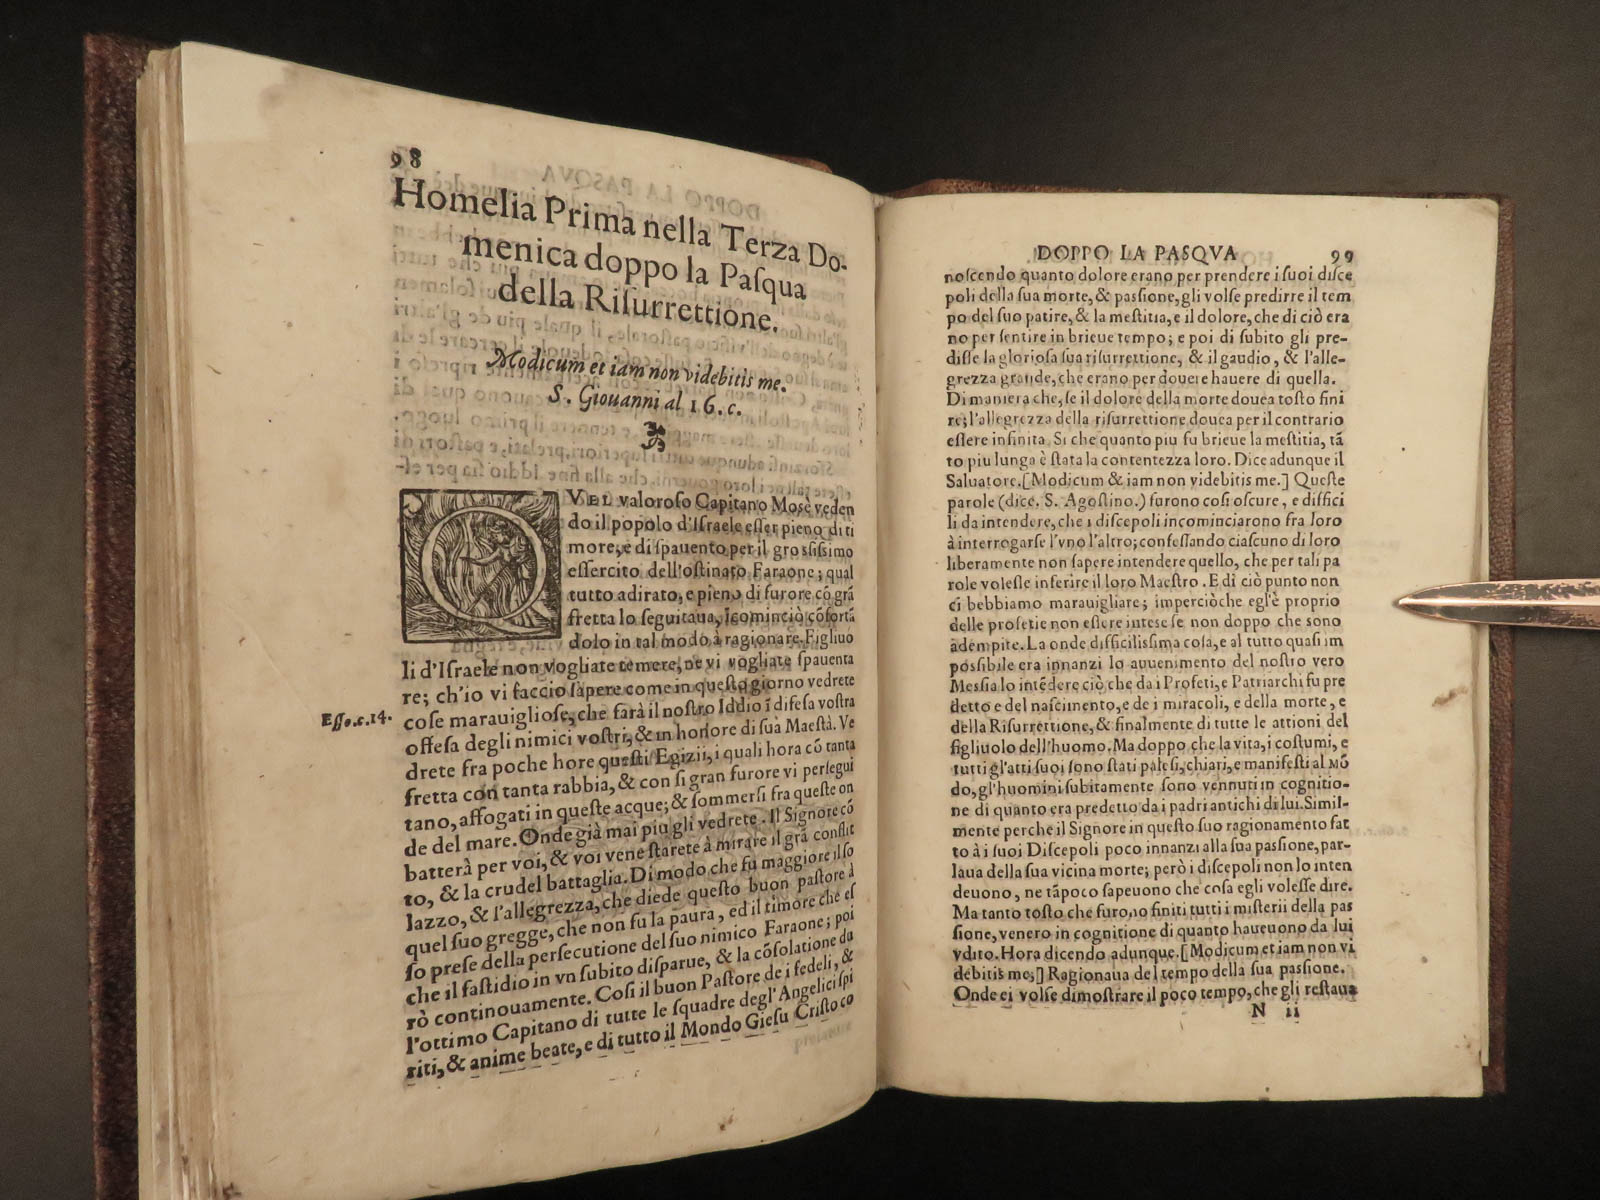 98
Homelia Prima nella Terza Do-
menica doppo la Paſqua
della Riſurrettione.
Modicum et iam non videbitis me.
S. Giouanni al 16. c.
QVEL valoroſo Capitano Mosè veden
do il popolo d'Iſraele eſſer pieno di ti
more, e di ſpauento per il groſsiſsimo
eſſercito dell'oſtinato Faraone; qual
tutto adirato, e pieno di furore cō grā
fretta lo ſeguitaua, Icominciò cōfortā
dolo in tal modo à ragionare. Figliuo
li d'Iſraele non vogliate temere, ne vi vogliate ſpauenta
re; ch'io vi faccio ſapere come in queſto giorno vedrete
Eſſo.c.14.
coſe marauiglioſe, che farà il noſtro Iddio ī difeſa voſtra
offeſa degli nimici voſtri, & in honore di ſuà Maeſtà. Ve
drete fra poche hore queſti Egizii, i quali hora cō tanta
fretta con tanta rabbia, & con ſi gran furore vi perſegui
tano, affogati in queſte acque; & ſommerſi fra queſte on
de del mare. Onde già mai piu gli vedrete. Il Signore cō
batterà per voi, & voi vene ſtarete à mirare il grā conflit
to, & la crudel battaglia. Di modo che fu maggiore il ſo
lazzo, & l'allegrezza, che diede queſto buon paſtore à
quel ſuo gregge, che non fu la paura, ed il timore che eſ
ſo preſe della perſecutione del ſuo nimico Faraone; poi
che il faſtidio in vn ſubito diſparue, & la cōſolatione du
rò continouamente. Coſi il buon Paſtore de i fedeli, &
l'ottimo Capitano di tutte le ſquadre degl'Angelici ſpi
riti, & anime beate, e di tutto il Mondo Gieſu Criſto co
DOPPO LA PASQVA 99
noſcendo quanto dolore erano per prendere i ſuoi diſce
poli della ſua morte, & paſſione, gli volſe predirre il tem
po del ſuo patire, & la meſtitia, e il dolore, che di ciò era
no per ſentire in brieue tempo; e poi di ſubito gli pre-
diſſe la glorioſa ſua riſurrettione, & il gaudio, & l'alle-
grezza grande, che erano per douere hauere di quella.
Di maniera che, ſe il dolore della morte douea toſto fini
re; l'allegrezza della riſurrettione douea per il contrario
eſſere infinita. Si che quanto piu fu brieue la meſtitia, tā
to piu lunga è ſtata la contentezza loro. Dice adunque il
Saluatore. [Modicum & iam non videbitis me.] Queſte
parole (dice. S. Agoſtino.) furono coſi oſcure, e diffici
li da intendere, che i diſcepoli incominciarono fra loro
à interrogarſe l'vno l'altro; confeſſando ciaſcuno di loro
liberamente non ſapere intendere quello, che per tali pa
role voleſſe inferire il loro Maeſtro. E di ciò punto non
ci bebbiamo marauigliare; imperciòche egl'è proprio
delle profetie non eſſere inteſe ſe non doppo che sono
adempite. La onde difficiliſſima coſa, e al tutto quaſi im
poſsibile era innanzi lo auuenimento del noſtro vero
Meſsia lo intēdere ciò che da i Profeti, e Patriarchi fu pre
detto e del naſcimento, e de i miracoli, e della morte, e
della Riſurrettione, & finalmente di tutte le attioni del
figliuolo dell'huomo. Ma doppo che la vita, i coſtumi, e
tutti gl'atti ſuoi ſono ſtati paleſi, chiari, e manifeſti al Mō
do, gl'huomini ſubitamente ſono vennuti in cognitio-
ne di quanto era predetto da i padri antichi di lui. Simil-
mente perche il Signore in queſto ſuo ragionamento fat
to à i ſuoi Diſcepoli poco innanzi alla ſua paſsione, par-
laua della ſua vicina morte; però i diſcepoli non lo inten
deuono, ne tāpoco ſapeuono che coſa egli voleſſe dire.
Ma tanto toſto che furono finiti tutti i miſterii della paſ
ſione, venero in cognitione di quanto haueuono da lui
vdito. Hora dicendo adunque. [Modicum et iam non vi
debitis me;] Ragionaua del tempo della ſua paſsione.
Onde ci volſe dimoſtrare il poco tempo, che gli reſtaua
N ii